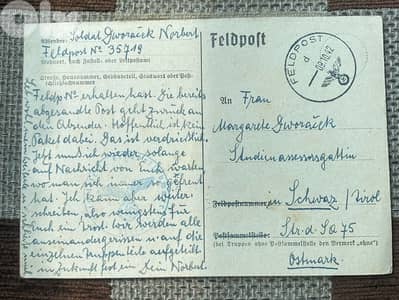 Soldat Dworaück Norbert
Absender:
Feldpost No 35719
Wohnort, auch Zustell- oder Leitpostamt
Straße, Hausnummer, Gebäudeteil, Stockwert oder Post-
schließfachnummer
Feldp No erhalten hast. Die bereits
abgesandte Post geht zurück an
den Absender. Hoffentlich ist kein
Paket dabei. Das ist verdrießlich.
Jetzt muß ich wieder solange
auf Nachricht von Euch warten
wo man sich immer so gefreut
hat. Ich kann aber weiter-
schreiben, also wenigstens für
Euch ein Trost. Wir werden alle
auseinandergerissen u. auf die
einzelnen Truppenteile aufgeteilt
in Zukunft
Dein Norbert.
Feldpost
FELDPOST
d
09.10.42
An Frau
Margarete Dworaück
Studienassessorsgattin
Feldpostnummer
Schwaz / Tirol
Postsammelstelle:
Str. d. SA 75
(bei Truppen ohne Postsammelstelle den Vermerk „ohne“)
Ostmark.